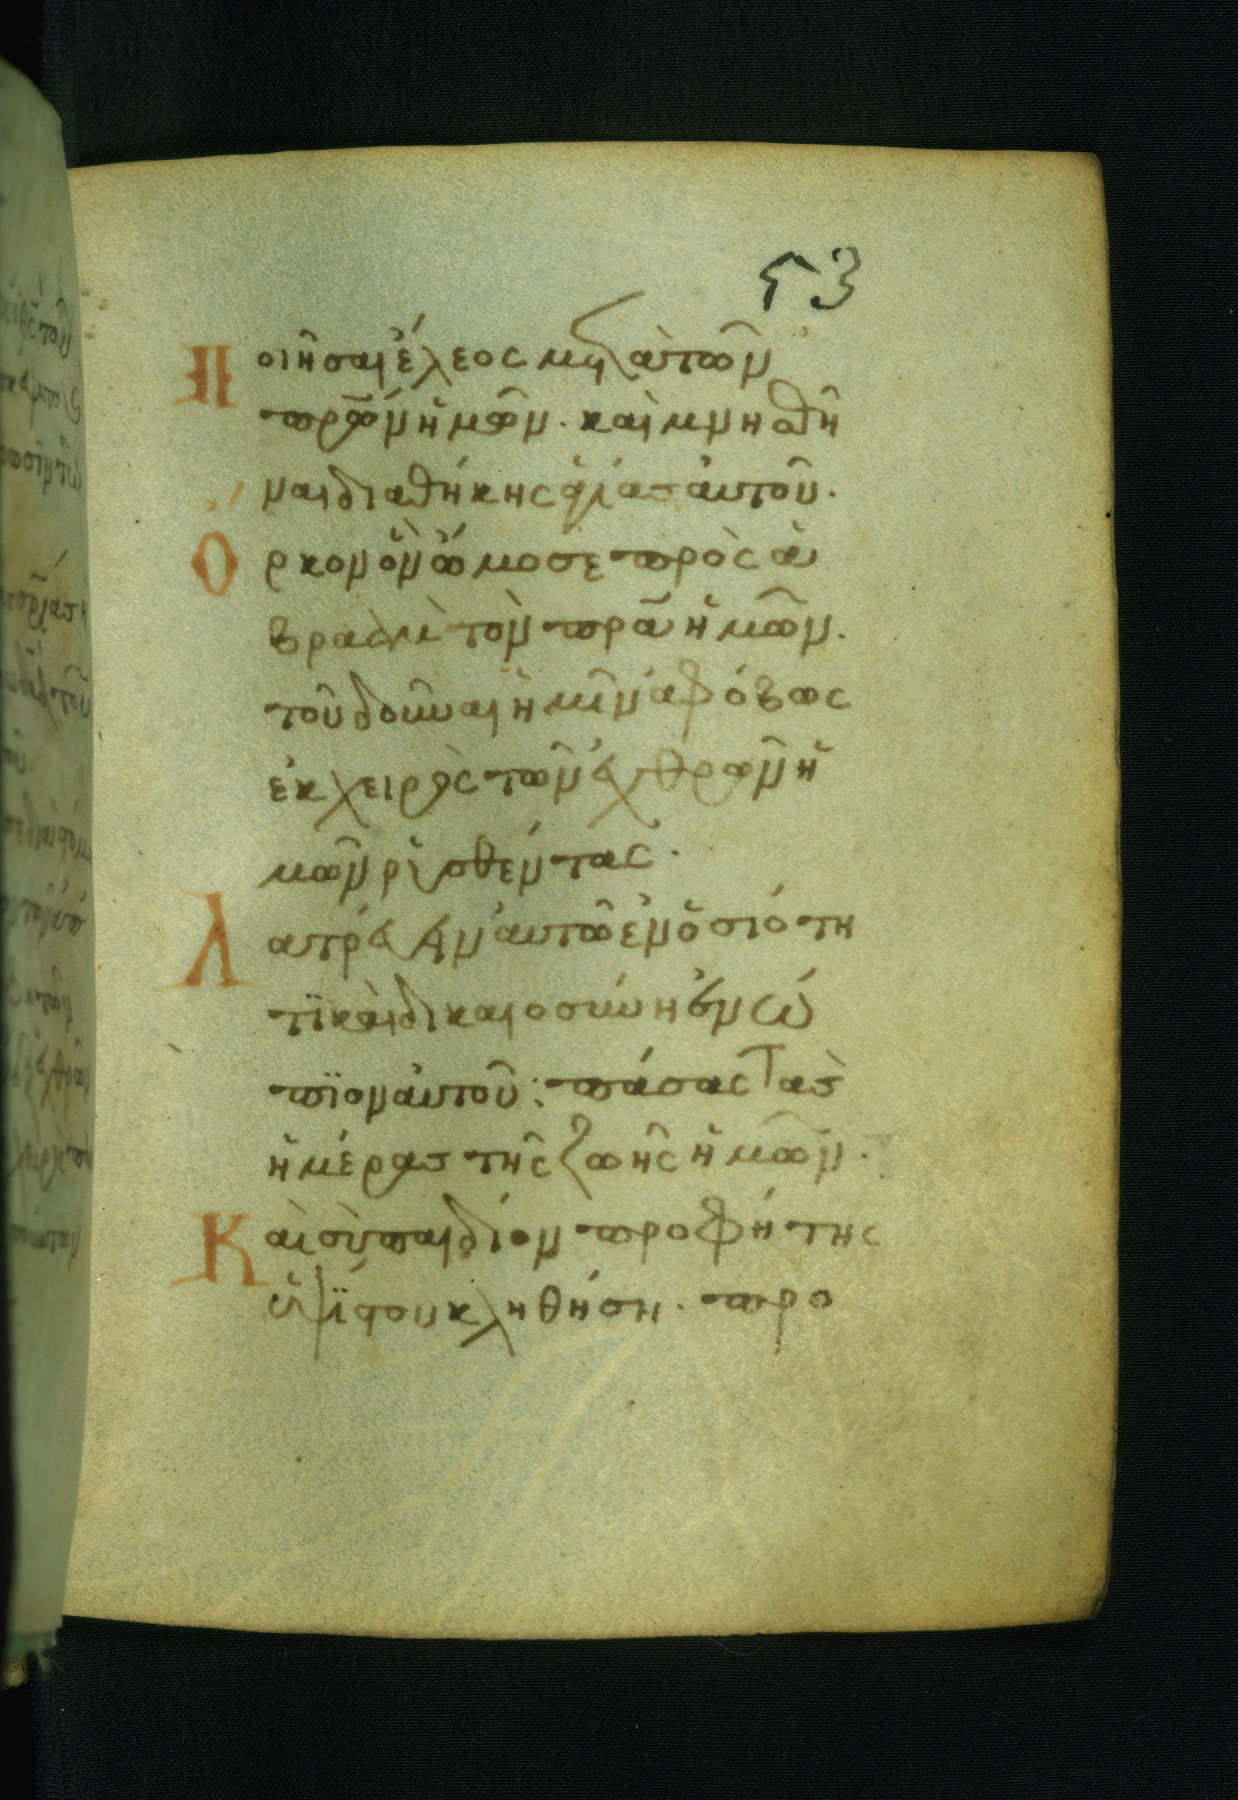 53
Ποιῆσαι ἔλεος μετὰ τῶν
πρων ἡμῶν. καὶ μνησθῆ
ναι διαθήκης ἁγίας αὐτοῦ.
Ὅρκον ὃν ὤμοσε πρὸς ἀ
βραὰμ τὸν πρα ἡμῶν.
τοῦ δοῦναι ἡμῖν ἀφόβως
ἐκ χειρὸς τῶν ἐχθρῶν ἡ
μῶν ῥυσθέντας.
Λατρεύειν αὐτῶ ἐν ὁσιότη
τϊ καὶ δικαιοσύνη ἐνώ
πϊον αὐτοῦ: πάσας τὰς
ἡμέρας τῆς ζωῆς ἡμῶν.
Καὶ σὺ παιδίον προφήτης
ὑψίστου κληθήση. προ